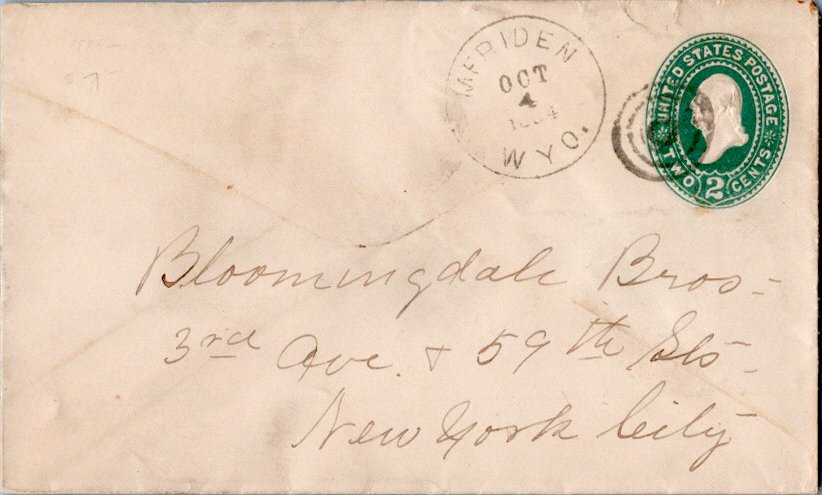 MERIDEN
OCT
4
WYO.
UNITED STATES POSTAGE
TWO 2 CENTS
Bloomingdale Bros-
3rd Ave. & 59th Sts-
New York City